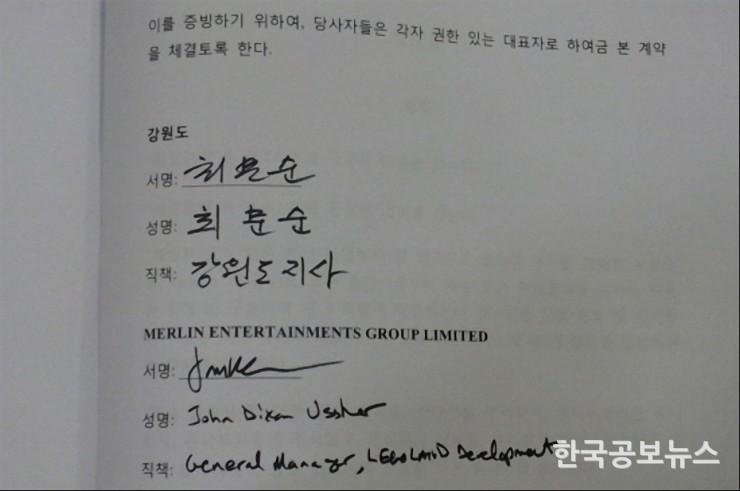 이를 증빙하기 위하여, 당사자들은 각자 권한 있는 대표자로 하여금 본 계약
을 체결토록 한다.
강원도
서명: 최문순
성명: 최문순
직책: 강원도지사
MERLIN ENTERTAINMENTS GROUP LIMITED
서명:
성명: John Dixon Ussher
직책: General Manager, LEGOLAND Development
한국공보뉴스